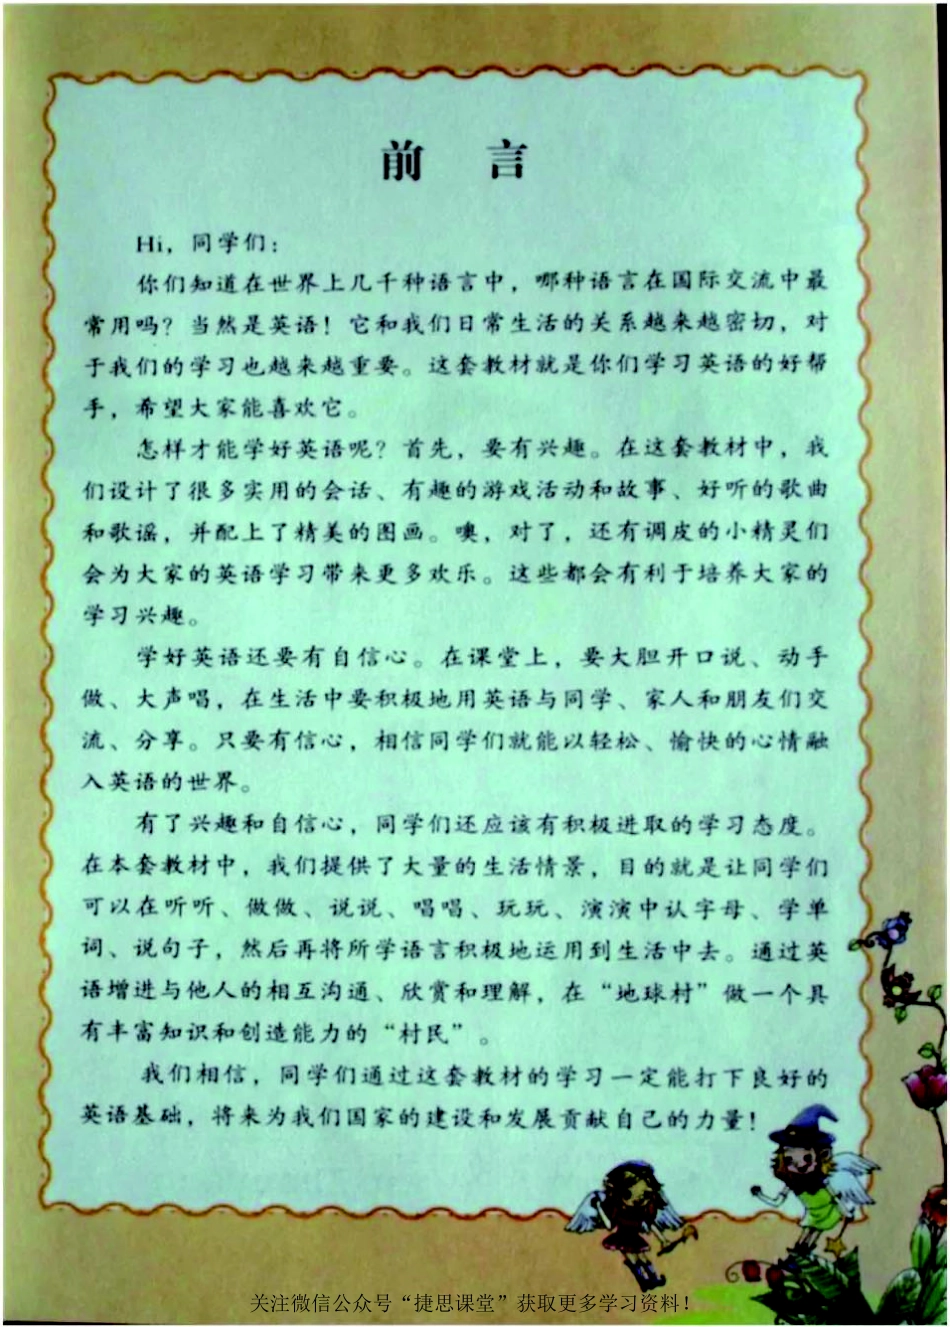 前 言
Hi，同学们：
你们知道在世界上几千种语言中，哪种语言在国际交流中最
常用吗？当然是英语！它和我们日常生活的关系越来越密切，对
于我们的学习也越来越重要。这套教材就是你们学习英语的好帮
手，希望大家能喜欢它。
怎样才能学好英语呢？首先，要有兴趣。在这套教材中，我
们设计了很多实用的会话、有趣的游戏活动和故事、好听的歌曲
和歌谣，并配上了精美的图画。噢，对了，还有调皮的小精灵们
会为大家的英语学习带来更多欢乐。这些都会有利于培养大家的
学习兴趣。
学好英语还要有自信心。在课堂上，要大胆开口说、动手
做、大声唱，在生活中要积极地用英语与同学、家人和朋友们交
流、分享。只要有信心，相信同学们就能以轻松、愉快的心情融
入英语的世界。
有了兴趣和自信心，同学们还应该有积极进取的学习态度。
在本套教材中，我们提供了大量的生活情景，目的就是让同学们
可以在听听、做做、说说、唱唱、玩玩、演演中认字母、学单
词、说句子，然后再将所学语言积极地运用到生活中去。通过英
语增进与他人的相互沟通、欣赏和理解，在“地球村”做一个具
有丰富知识和创造能力的“村民”。
我们相信，同学们通过这套教材的学习一定能打下良好的
英语基础，将来为我们国家的建设和发展贡献自己的力量！
关注微信公众号“捷思课堂”获取更多学习资料！